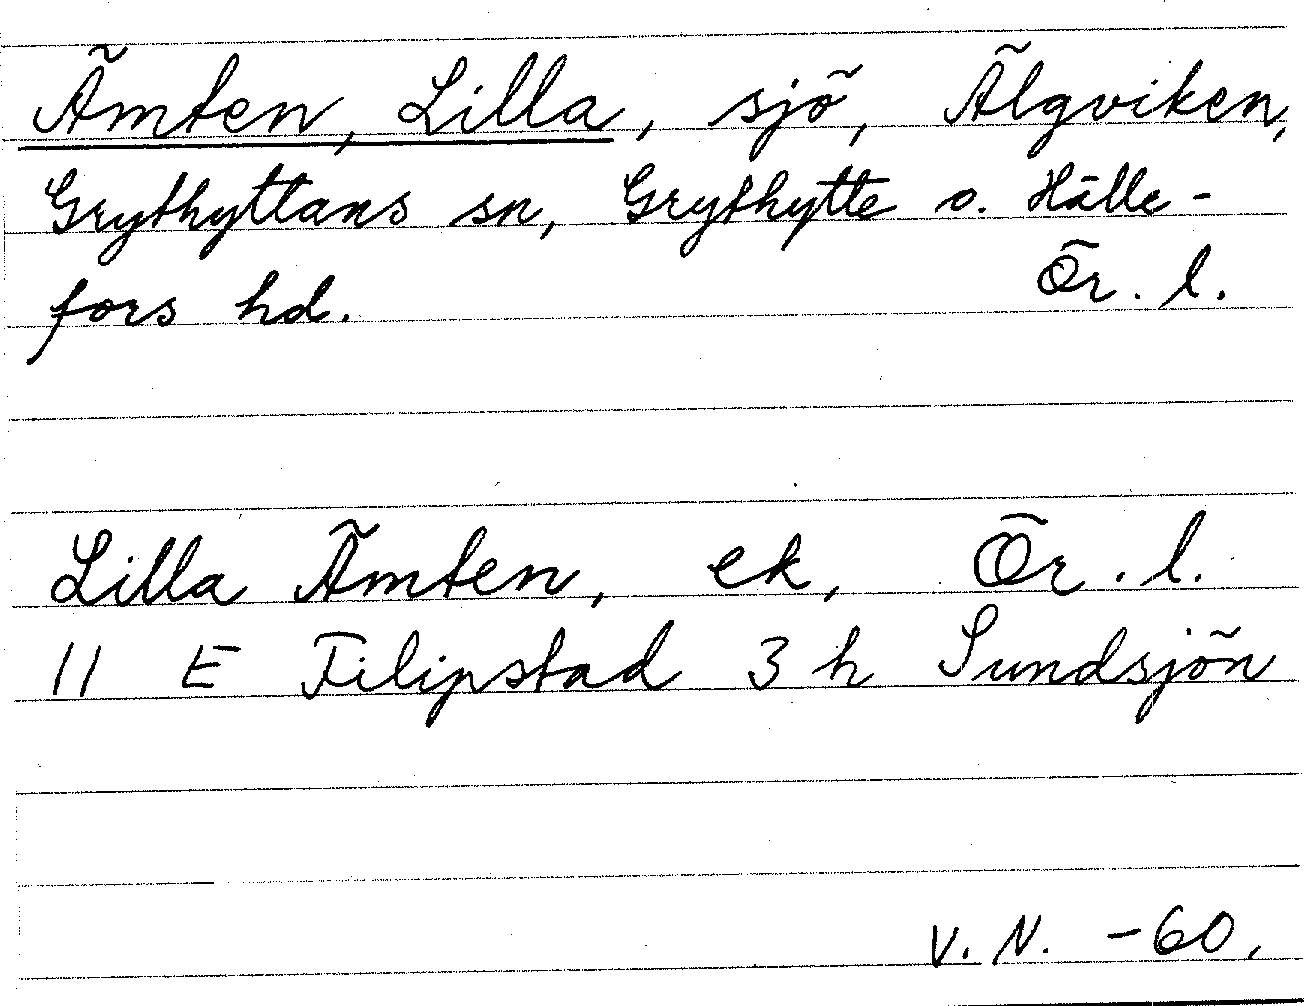 Ämten, Lilla, sjö, Älgviken,
Grythyttans sn, Grythytte o. Hälle-
fors hd. Ör. l.
Lilla Ämten, ek, Ör. l.
11 E Filipstad 3 h Sundsjön
V. N. -60.